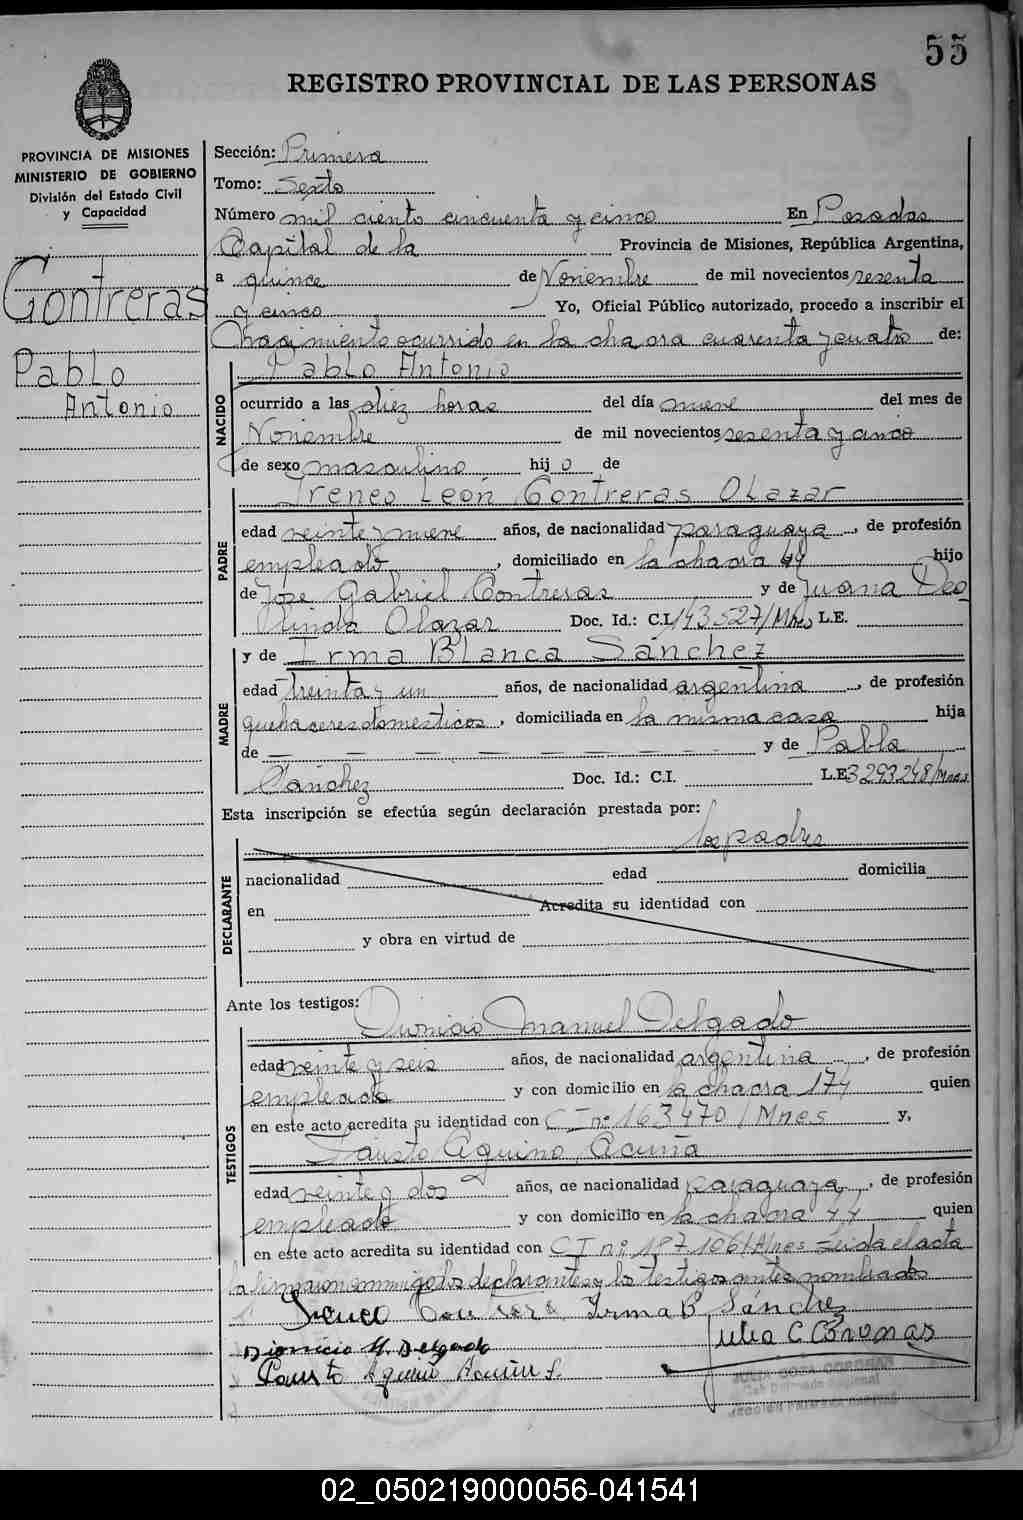 55
REGISTRO PROVINCIAL DE LAS PERSONAS
PROVINCIA DE MISIONES
MINISTERIO DE GOBIERNO
División del Estado Civil
y Capacidad
Contreras
Pablo
Antonio
Sección: Primera
Tomo: Sexto
Número mil ciento cincuenta y cinco En Posadas
Capital de la Provincia de Misiones, República Argentina,
a quince de Noviembre de mil novecientos sesenta
y cinco Yo, Oficial Público autorizado, procedo a inscribir el
Nacimiento ocurrido en la chacra cuarenta y cuatro de:
NACIDO
Pablo Antonio
ocurrido a las diez horas del día nueve del mes de
Noviembre de mil novecientos sesenta y cinco
de sexo masculino hijo de
PADRE
Ireneo León Contreras Olazar
edad veinte y nueve años, de nacionalidad paraguaya, de profesión
empleado, domiciliado en la chacra 44 hijo
de José Gabriel Contreras y de Juana Deo
linda Olazar Doc. Id.: C.I. 143527/Mnes L.E.
MADRE
y de Irma Blanca Sánchez
edad treinta y un años, de nacionalidad argentina, de profesión
quehaceres domésticos, domiciliada en la misma casa hija
de — — — — — — — y de Pabla
Sánchez Doc. Id.: C.I. L.E. 3293248/Mnes.
Esta inscripción se efectúa según declaración prestada por:
los padres
DECLARANTE
nacionalidad edad domicilia
en Acredita su identidad con
y obra en virtud de
Ante los testigos:
TESTIGOS
Dionicio Manuel Delgado
edad veinte y seis años, de nacionalidad argentina, de profesión
empleado y con domicilio en la chacra 174 quien
en este acto acredita su identidad con CI nº 163470/Mnes y,
Fausto Aquino Acuña
edad veinte y dos años, de nacionalidad paraguaya, de profesión
empleado y con domicilio en la chacra 44 quien
en este acto acredita su identidad con CI nº 187106/Mnes Leida el acta
la firmaron conmigo los declarantes y los testigos antes nombrados
Ireneo Contreras Irma B Sánchez
Dionicio M. Delgado
Julia C Coronas
Fausto Aquino Acuña
02_050219000056-041541